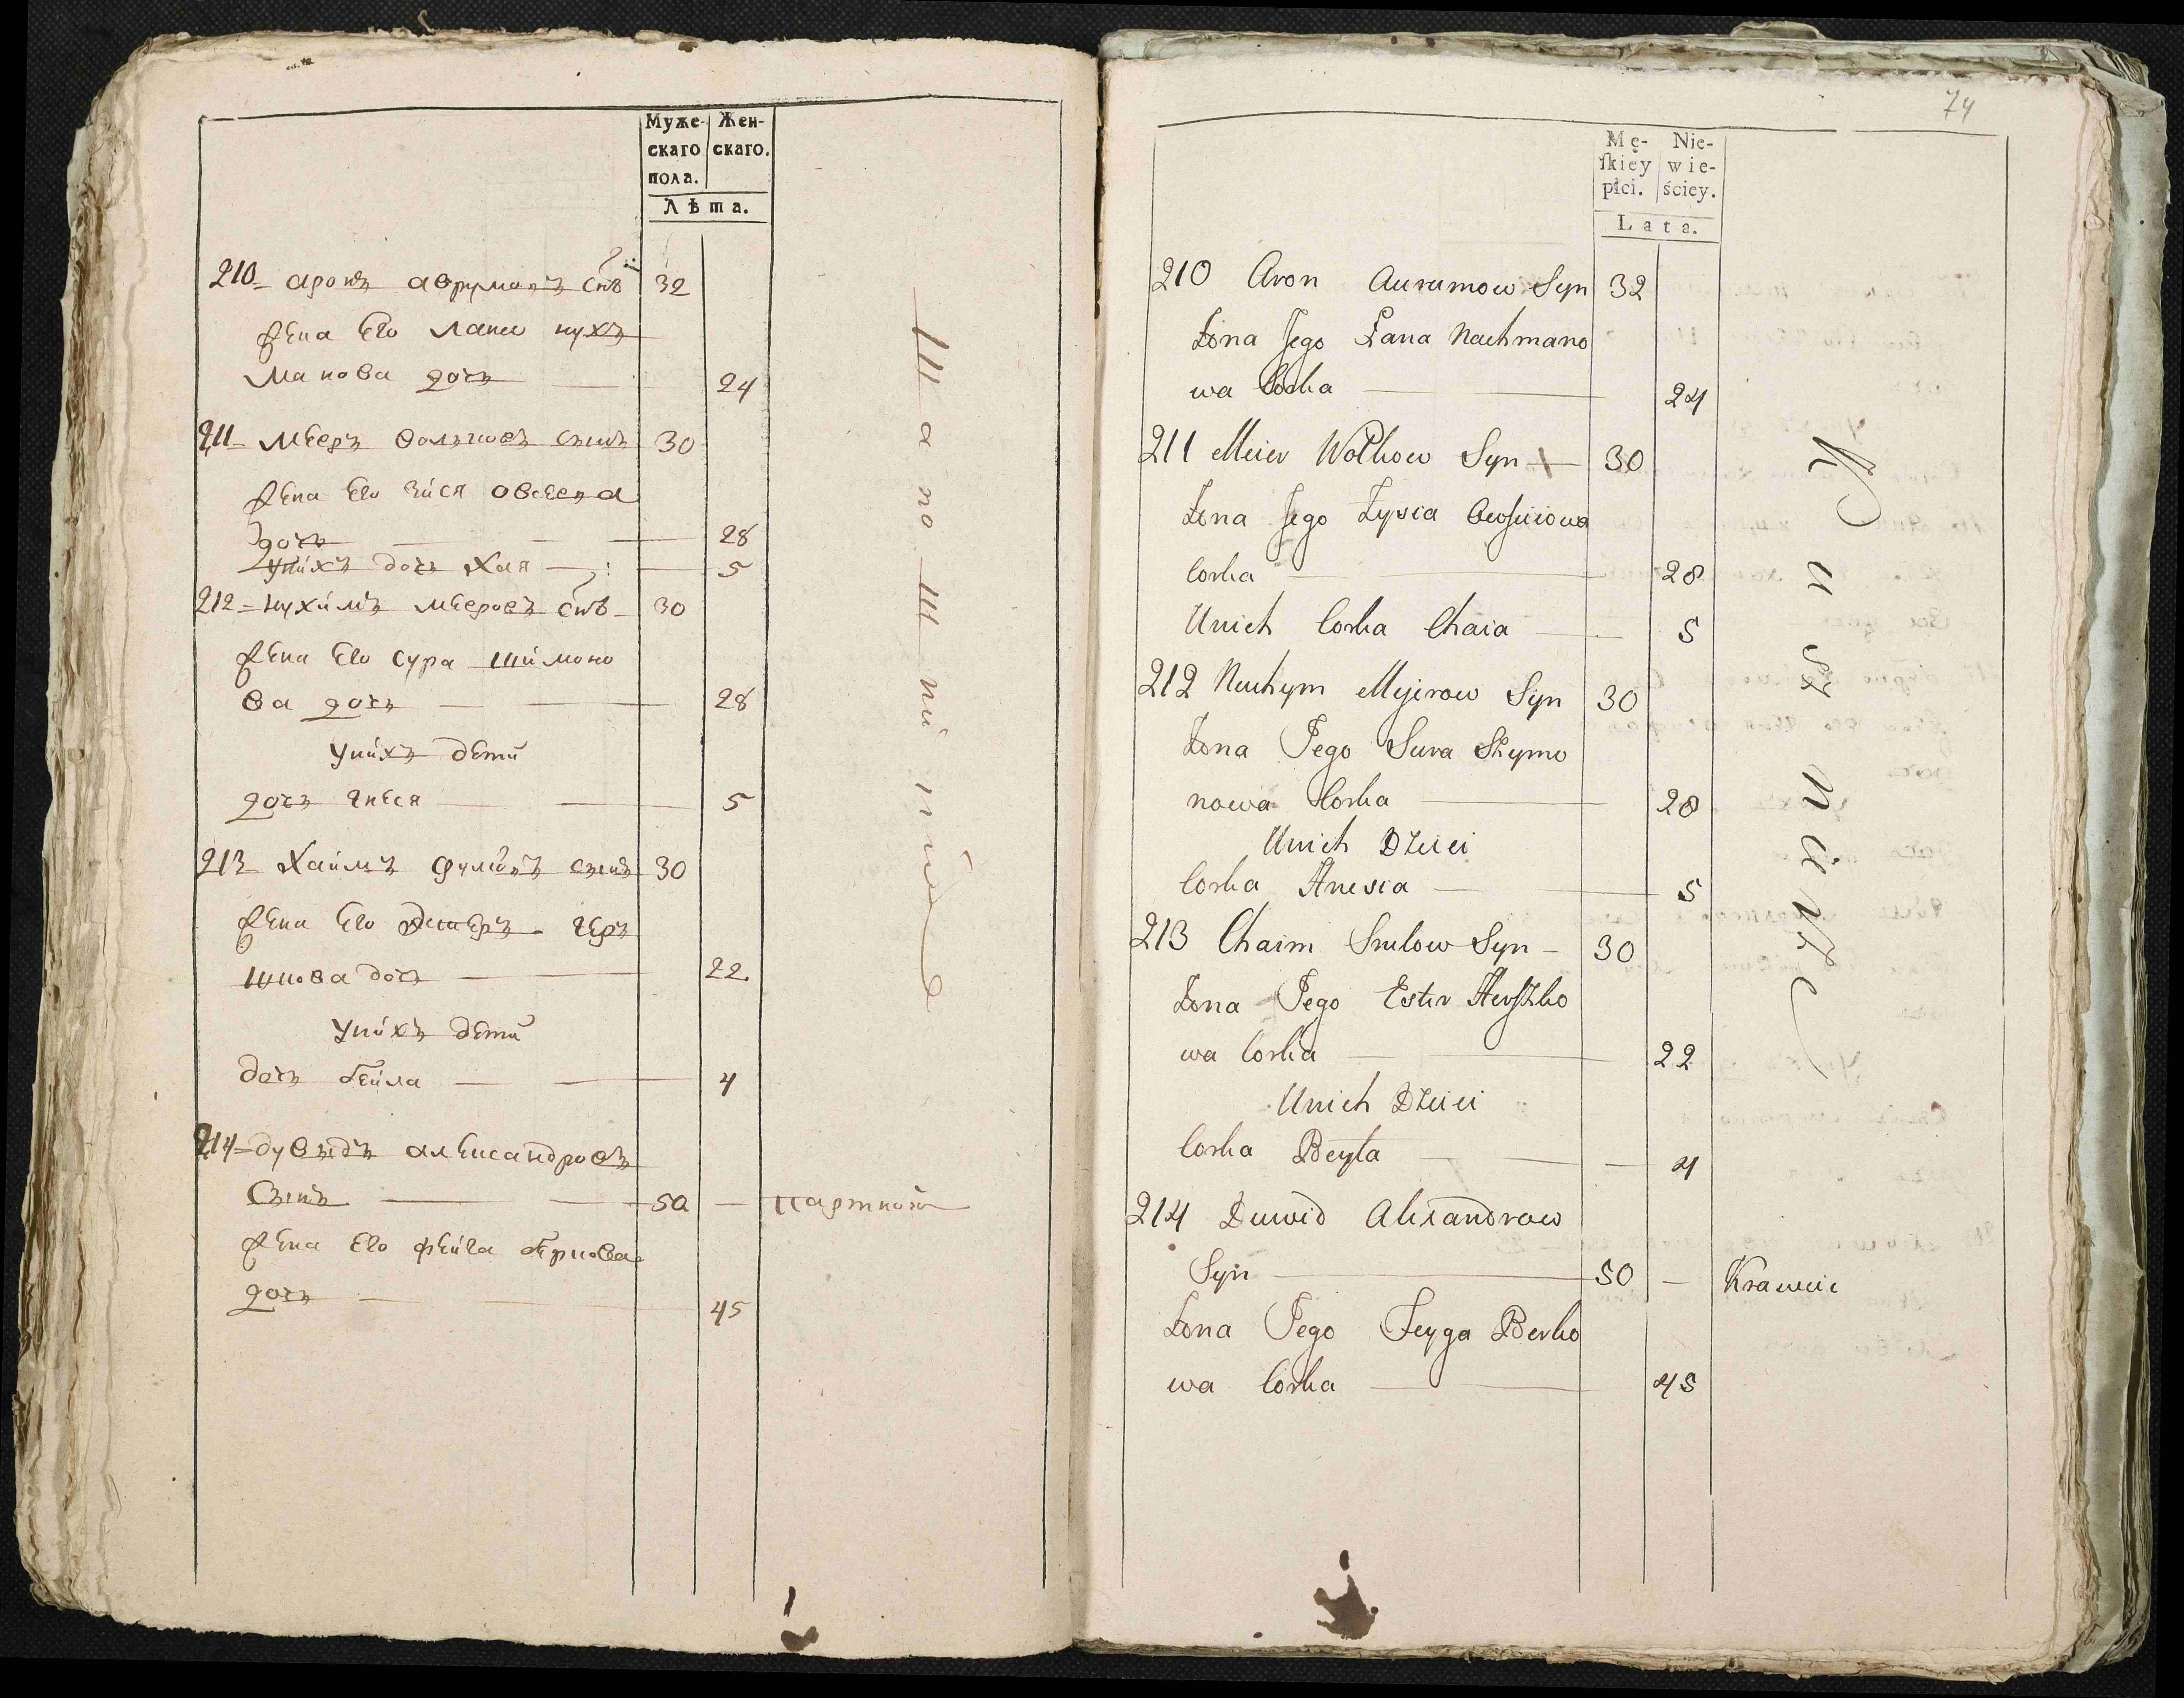 Муже- Жен-
скаго скаго.
пола.
Лѣта.
210 Аронъ Аврумовъ снъ 32
жена Его Лана нух
манова дочъ 24
211 Мееръ Волковъ сынъ 30
жена Его Зися Овсеева
дочъ 28
Унихъ дочъ Хая 5
212 Нухимъ Мееровъ снъ 30
жена Его Сура Шимоно
ва дочъ 28
Унихъ дети
дочъ Гнеся 5
213 Хаимъ сынъ 30
жена Его Эстеръ Гер
шкова дочъ 22
Унихъ дети
дочъ Бейла 4
214 Дувидъ Александровъ
Сынъ 50 — партной
жена Его Фейга Беркова
дочъ 45
74
Mę- Nie-
ſkiey wie-
płci. ściey.
Lata.
210 Aron Aurumow Syn 32
Żona Jego Łana Nachmano
wa Corka 24
211 Meier Wolkow Syn 30
Żona Jego Zysia
Corka 28
Unich Corka Chaia 5
212 Nuchym Meyerow Syn 30
Żona Jego Sura Szymo
nowa Corka 28
Unich Dzieci
Corka Hnesia 5
213 Chaim Srulow Syn 30
Żona Jego Ester Herszko
wa Corka 22
Unich Dzieci
Corka Beyla 4
214 Duwid Alexandrow
Syn 50 — Krawiec
Żona Jego Feyga Berko
wa Corka 45